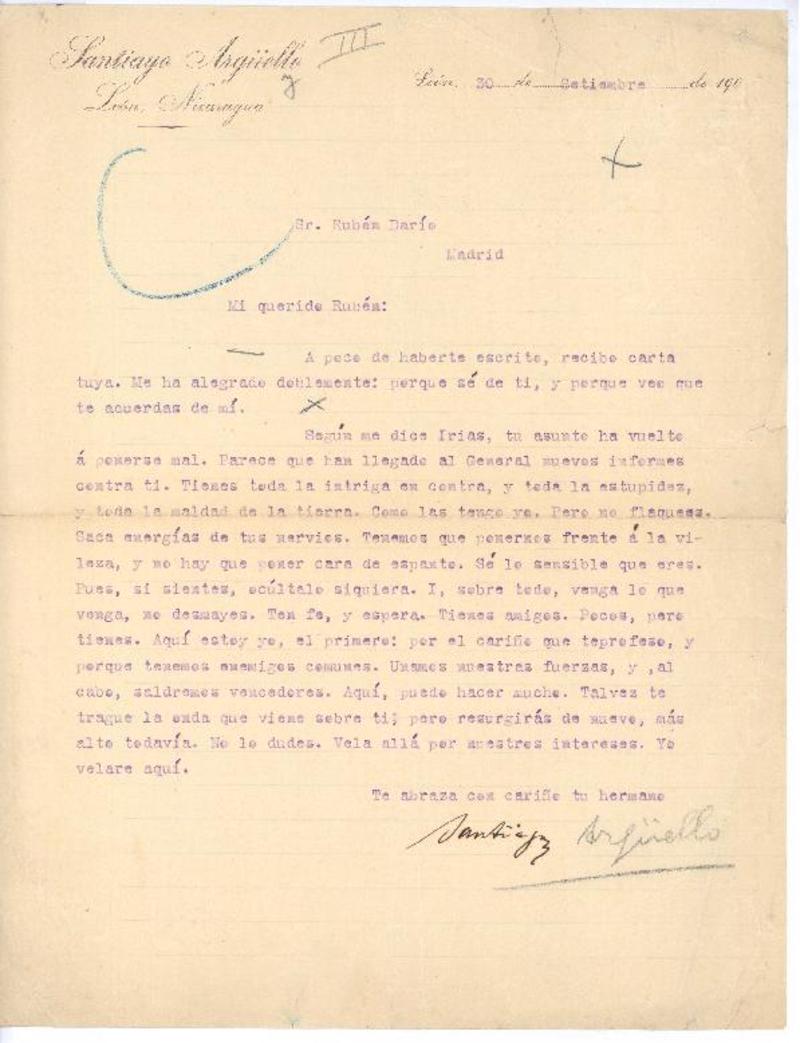 Santiago Argüello
III
y
León, Nicaragua
León, 30 de Setiembre de 190
Sr. Rubén Darío
Madrid
Mi querido Rubén:
A poco de haberte escrito, recibo carta
tuya. Me ha alegrado doblemente: porque sé de ti, y porque veo que
te acuerdas de mí.
Según me dice Irias, tu asunto ha vuelto
á ponerse mal. Parece que han llegado al General nuevos informes
contra ti. Tienes toda la intriga en contra, y toda la estupidez,
y toda la maldad de la tierra. Como las tengo yo. Pero no flaquees.
Saca energías de tus nervios. Tenemos que ponernos frente á la vi-
leza, y no hay que poner cara de espanto. Sé lo sensible que eres.
Pues, si sientes, ocúltalo siquiera. I, sobre todo, venga lo que
venga, no desmayes. Ten fe, y espera. Tienes amigos. Pocos, pero
tienes. Aquí estoy yo, el primero: por el cariño que teprofeso, y
porque tenemos enemigos comunes. Unamos nuestras fuerzas, y ,al
cabo, saldremos vencedores. Aquí, puedo hacer mucho. Talvez te
trague la onda que viene sobre ti; pero resurgirás de nuevo, más
alto todavía. No lo dudes. Vela allá por nuestros intereses. Yo
velare aquí.
Te abraza con cariño tu hermano
Santiago Argüello